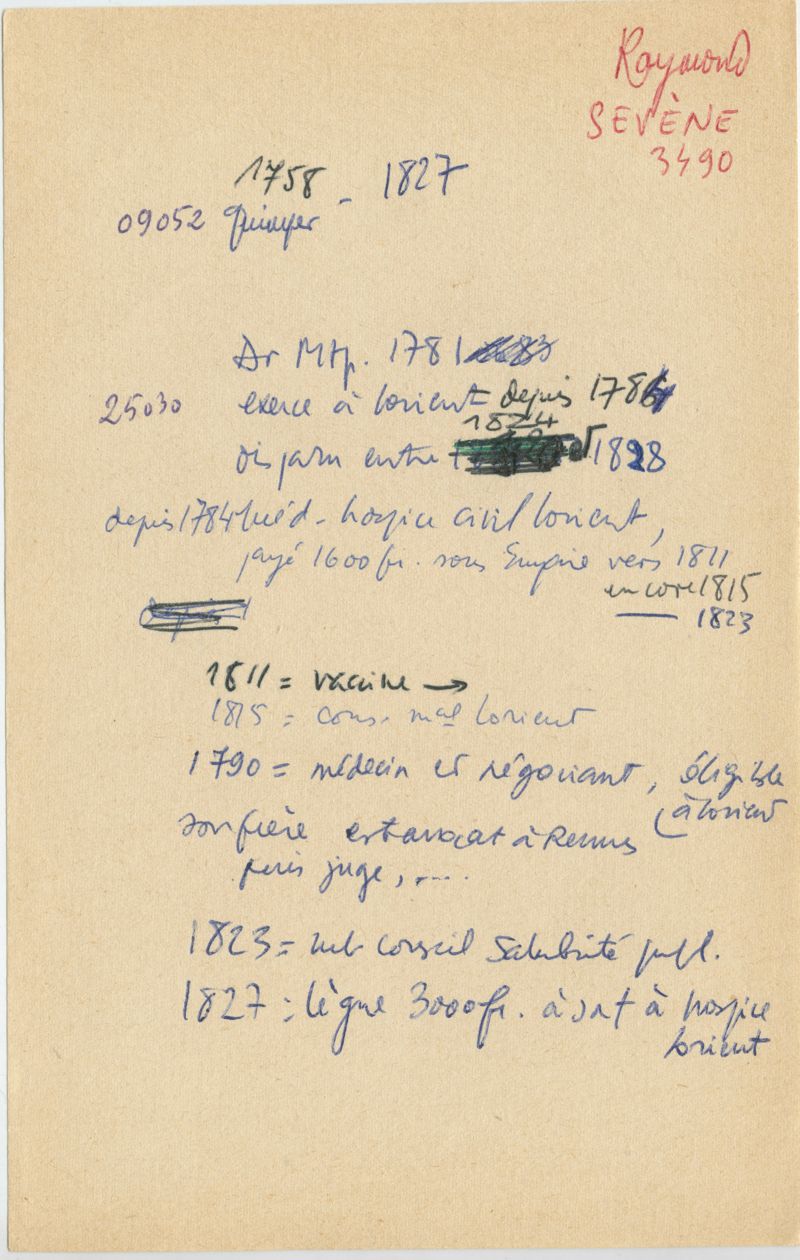 Raymond
SEVÈNE
3490
1758 - 1827
09052 Quimper
Dr Mtp. 1781
25030 exerce à Lorient depuis 1784
1824
disparu entre et 1828
depuis 1784 méd. hospice civil Lorient,
payé 1600 fr. sous Empire vers 1811
encore 1815
—— 1823
1811 = vaccine →
1815 = cons. mal Lorient
1790 = médecin et négociant, éligible
à Lorient
son frère est avocat à Rennes
puis juge, ....
1823 = mb conseil salubrité publ.
1827 : lègue 3000 fr. à sa † à hospice
Lorient